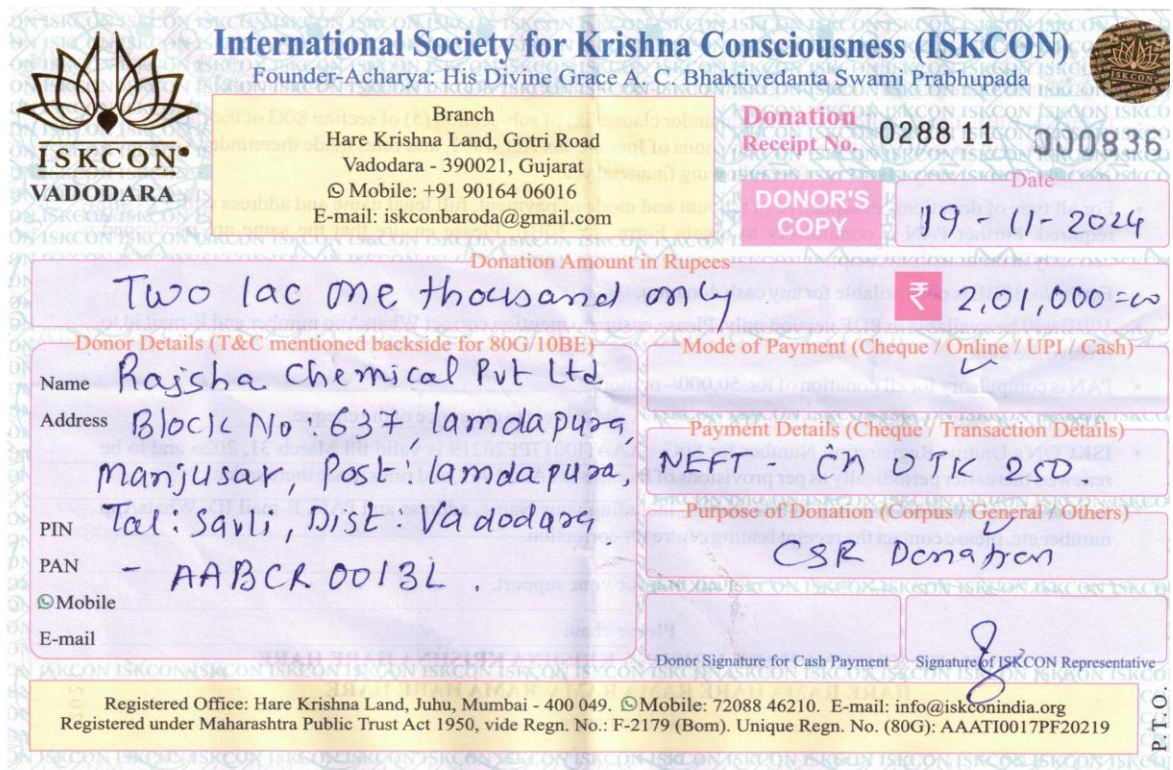 International Society for Krishna Consciousness (ISKCON)
Founder-Acharya: His Divine Grace A. C. Bhaktivedanta Swami Prabhupada
ISKCON
VADODARA
Branch
Hare Krishna Land, Gotri Road
Vadodara - 390021, Gujarat
Mobile: +91 90164 06016
E-mail: iskconbaroda@gmail.com
Donation
Receipt No. 028811 000836
DONOR'S
COPY
Date
19-11-2024
Donation Amount in Rupees
Two lac one thousand only.
₹ 2,01,000=00
Donor Details (T&C mentioned backside for 80G/10BE)
Name Rajsha Chemical Pvt Ltd
Address Block No: 637, lamdapura,
manjusar, Post-lamdapura,
PIN Tal. Savli, Dist. Vadodara.
PAN - AABCR0013L.
Mobile
E-mail
Mode of Payment (Cheque / Online / UPI / Cash)
Payment Details (Cheque / Transaction Details)
NEFT -
Purpose of Donation (Corpus / General / Others)
CSR Donation
Donor Signature for Cash Payment
Signature of ISKCON Representative
Registered Office: Hare Krishna Land, Juhu, Mumbai - 400 049. Mobile: 72088 46210. E-mail: info@iskconindia.org
Registered under Maharashtra Public Trust Act 1950, vide Regn. No.: F-2179 (Bom). Unique Regn. No. (80G): AAATI0017PF20219
P.T.O.